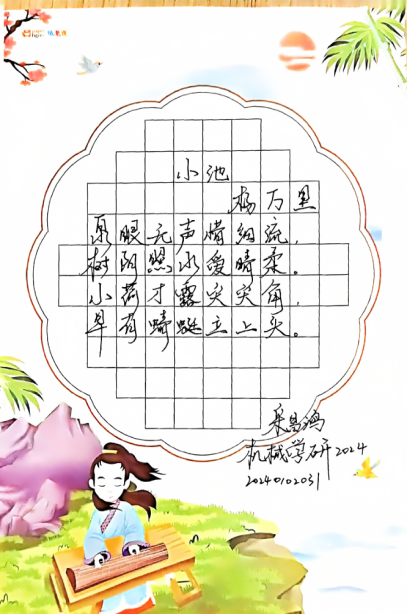 小池
杨万里
泉眼无声惜细流,
树阴照水爱晴柔。
小荷才露尖尖角,
早有蜻蜓立上头。
机械学研2024
20240102031